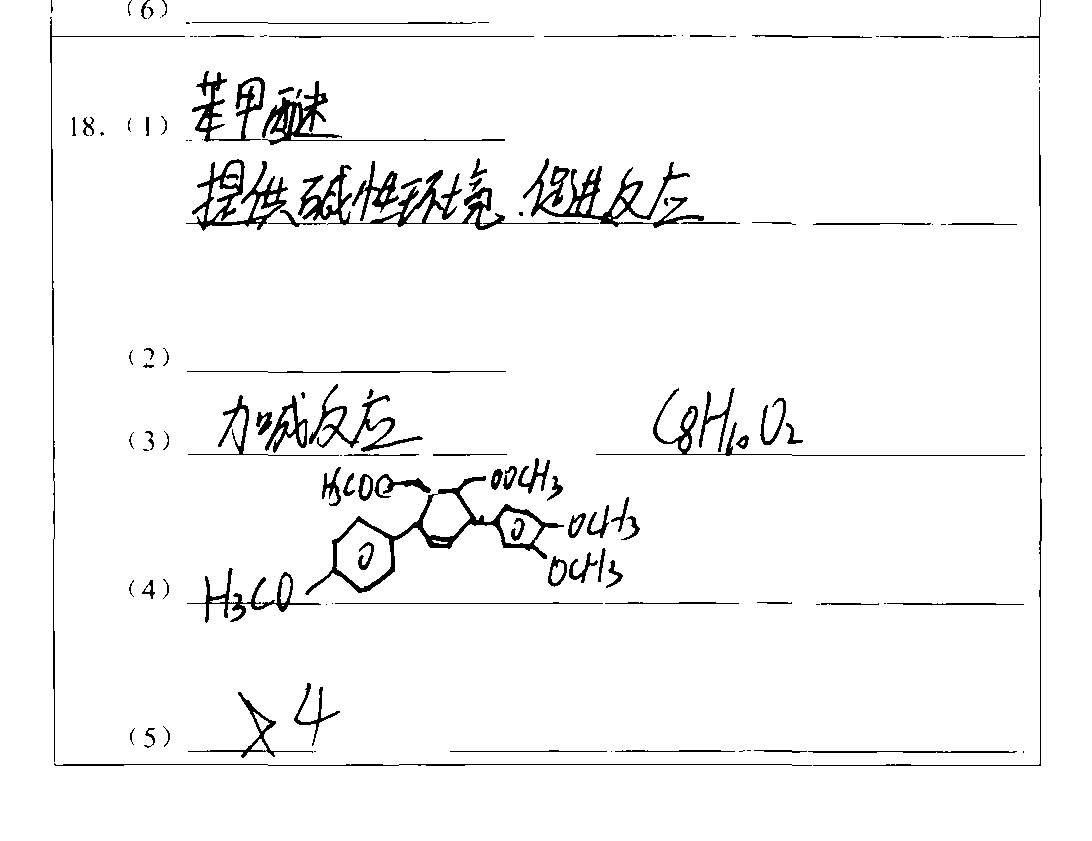 (6)
18. (1) 苯甲醚
提供碱性环境.促进反应
(2)
(3) 加成反应 C8H10O2
H3COO OOCH3
OCH3
OCH3
(4) H3CO
(5) 4